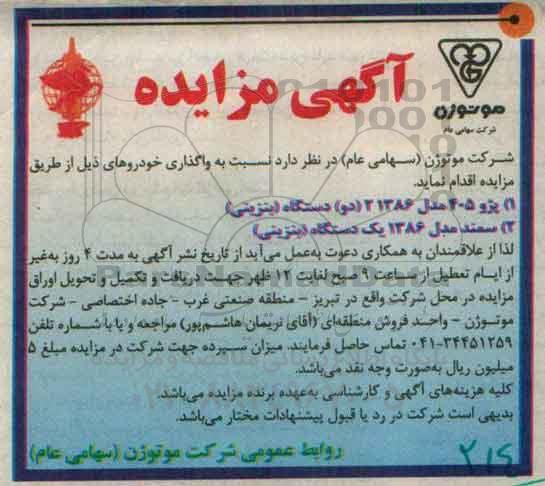 آگهی مزایده
موتوژن
شرکت سهامی عام
شـرکت موتوژن (سـهامی عام) در نظر دارد نسبت به واگذاری خودروهای ذیل از طریق
مزایده اقدام نماید.
۱) پژو ۴۰۵ مدل ۱۳۸۶ ۲ (دو) دستگاه (بنزینی)
۲) سمند مدل ۱۳۸۶ یک دستگاه (بنزینی)
لذا از علاقمندان به همکاری دعوت به‌عمل می‌آید از تاریخ نشر آگهی به مدت ۴ روز به‌غیر
از ایـام تعطیل از سـاعت ۹ صبح لغایت ۱۲ ظهر جهـت دریافت و تکمیل و تحویل اوراق
مزایده در محل شرکت واقع در تبریز - منطقه صنعتی غرب - جاده اختصاصی - شرکت
موتـوژن - واحـد فروش منطقه‌ای (آقای نریمان هاشم‌پور) مراجعه و یا با شـماره تلفن
۰۴۱-۳۴۴۵۱۲۵۹ تماس حاصل فرمایند. میزان سپرده جهت شرکت در مزایده مبلغ ۵
میلیون ریال به‌صورت وجه نقد می‌باشد.
کلیه هزینه‌های آگهی و کارشناسی به‌عهده برنده مزایده می‌باشد.
بدیهی است شرکت در رد یا قبول پیشنهادات مختار می‌باشد.
روابط عمومی شرکت موتوژن (سهامی عام)
۲۱۴